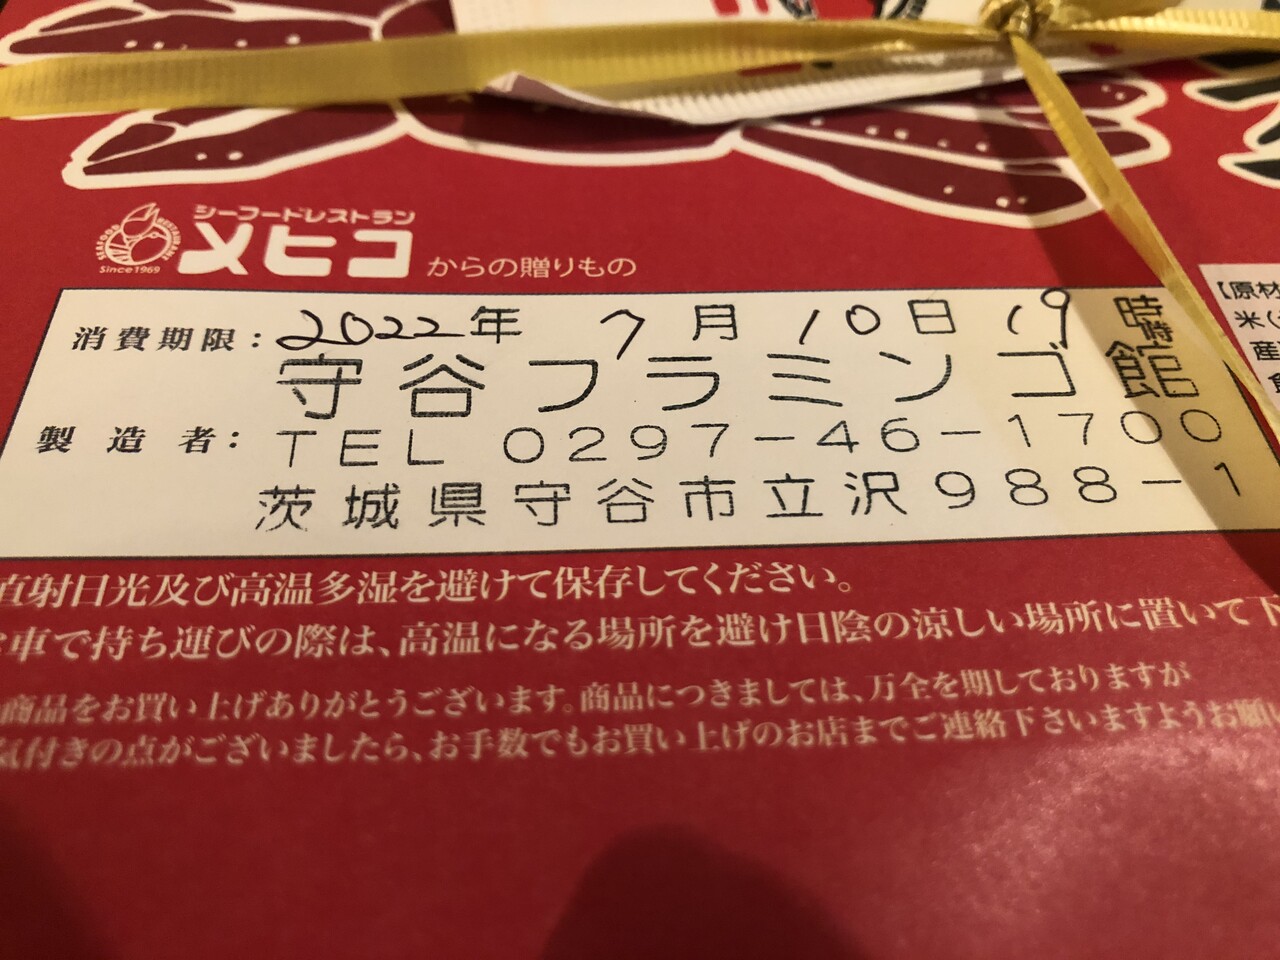 シーフードレストラン
メヒコ からの贈りもの
SEAFOOD RESTAURANT
Since 1969
消費期限: 2022年 7月 10日 19時
守谷フラミンゴ館
製造者: TEL 0297-46-1700
茨城県守谷市立沢988-1
【原材
米(
産
直射日光及び高温多湿を避けて保存してください。
車で持ち運びの際は、高温になる場所を避け日陰の涼しい場所に置いて下
商品をお買い上げありがとうございます。商品につきましては、万全を期しておりますが
気付きの点がございましたら、お手数でもお買い上げのお店までご連絡下さいますようお願い